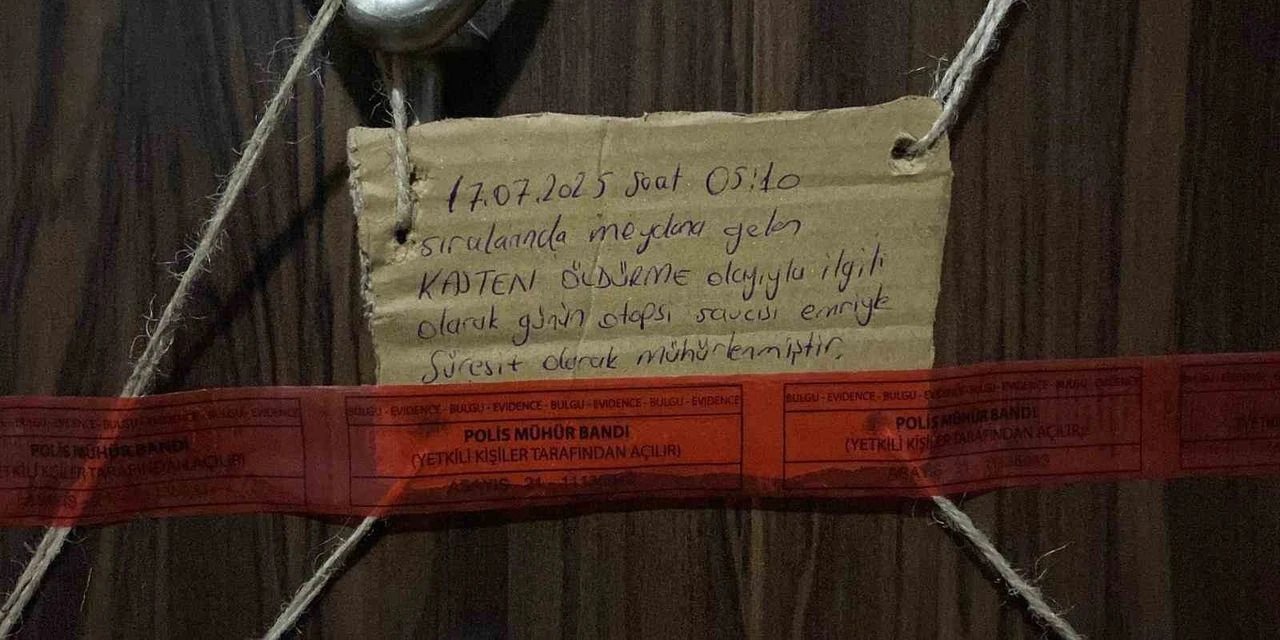 17.07.2025 Saat 05:10
sıralarında meydana gelen
KASTEN ÖLDÜRME olayıyla ilgili
olarak günün otopsi savcısı emriyle
Süresit olarak mühürlenmiştir.
BULGU - EVIDENCE - BULGU - EVIDENCE - BULGU - EVIDENCE - BULGU - EVIDENCE
POLİS MÜHÜR BANDI
(YETKİLİ KİŞİLER TARAFINDAN AÇILIR)
POLİS MÜHÜR BANDI
(YETKİLİ KİŞİLER TARAFINDAN AÇILIR)
POLİS MÜHÜR BANDI
(YETKİLİ KİŞİLER TARAFINDAN AÇILIR)